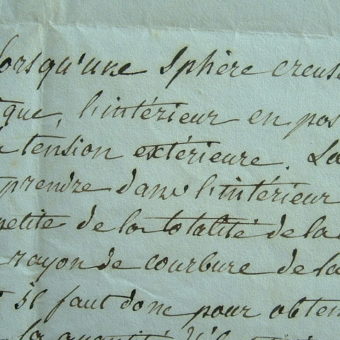 lorsqu'une sphère creuse
que, l'intérieur en pos
tension extérieure. La
prendre dans l'intérieur
petite de la totalité de la
rayon de courbure de la
il faut donc pour obten
la quantité d'